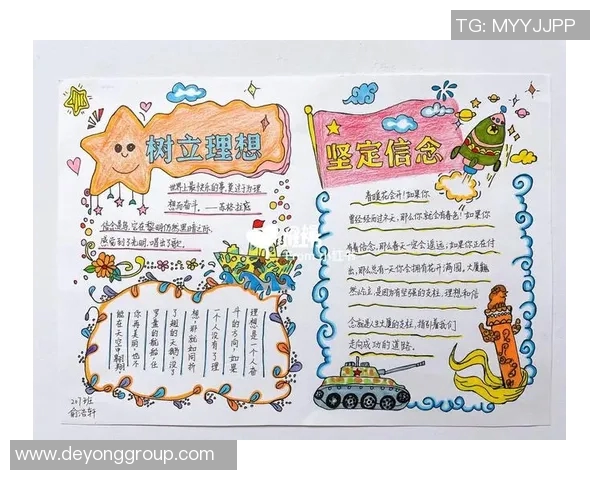 TG: MYYJJPP
树立理想
世界上最快乐的事,莫过于为理
想而奋斗。——苏格拉底
信念是鸟,它在黎明仍然黑暗之际,
感觉到了光明,唱出了歌。
理想是一个人奋
斗的方向,如果
一个人没有了理
想,那就如同折
了翅的天鹅,没了
罗盘的航船,任
你再美丽,也不
能在天空中翱翔
207班
俞浩轩
坚定信念
春暖花会开!如果你
曾经经历过冬天,那么你就会有春色!如果你
有着信念,那么春天一定会遥远;如果你正在付
出,那么总有一天你会拥有花开满园,大厦巍
然屹立,是因为有坚强的支柱,理想和信
念就是人生大厦的支柱,指引着我们
走向成功的道路。
小红书
www.deyonggroup.com